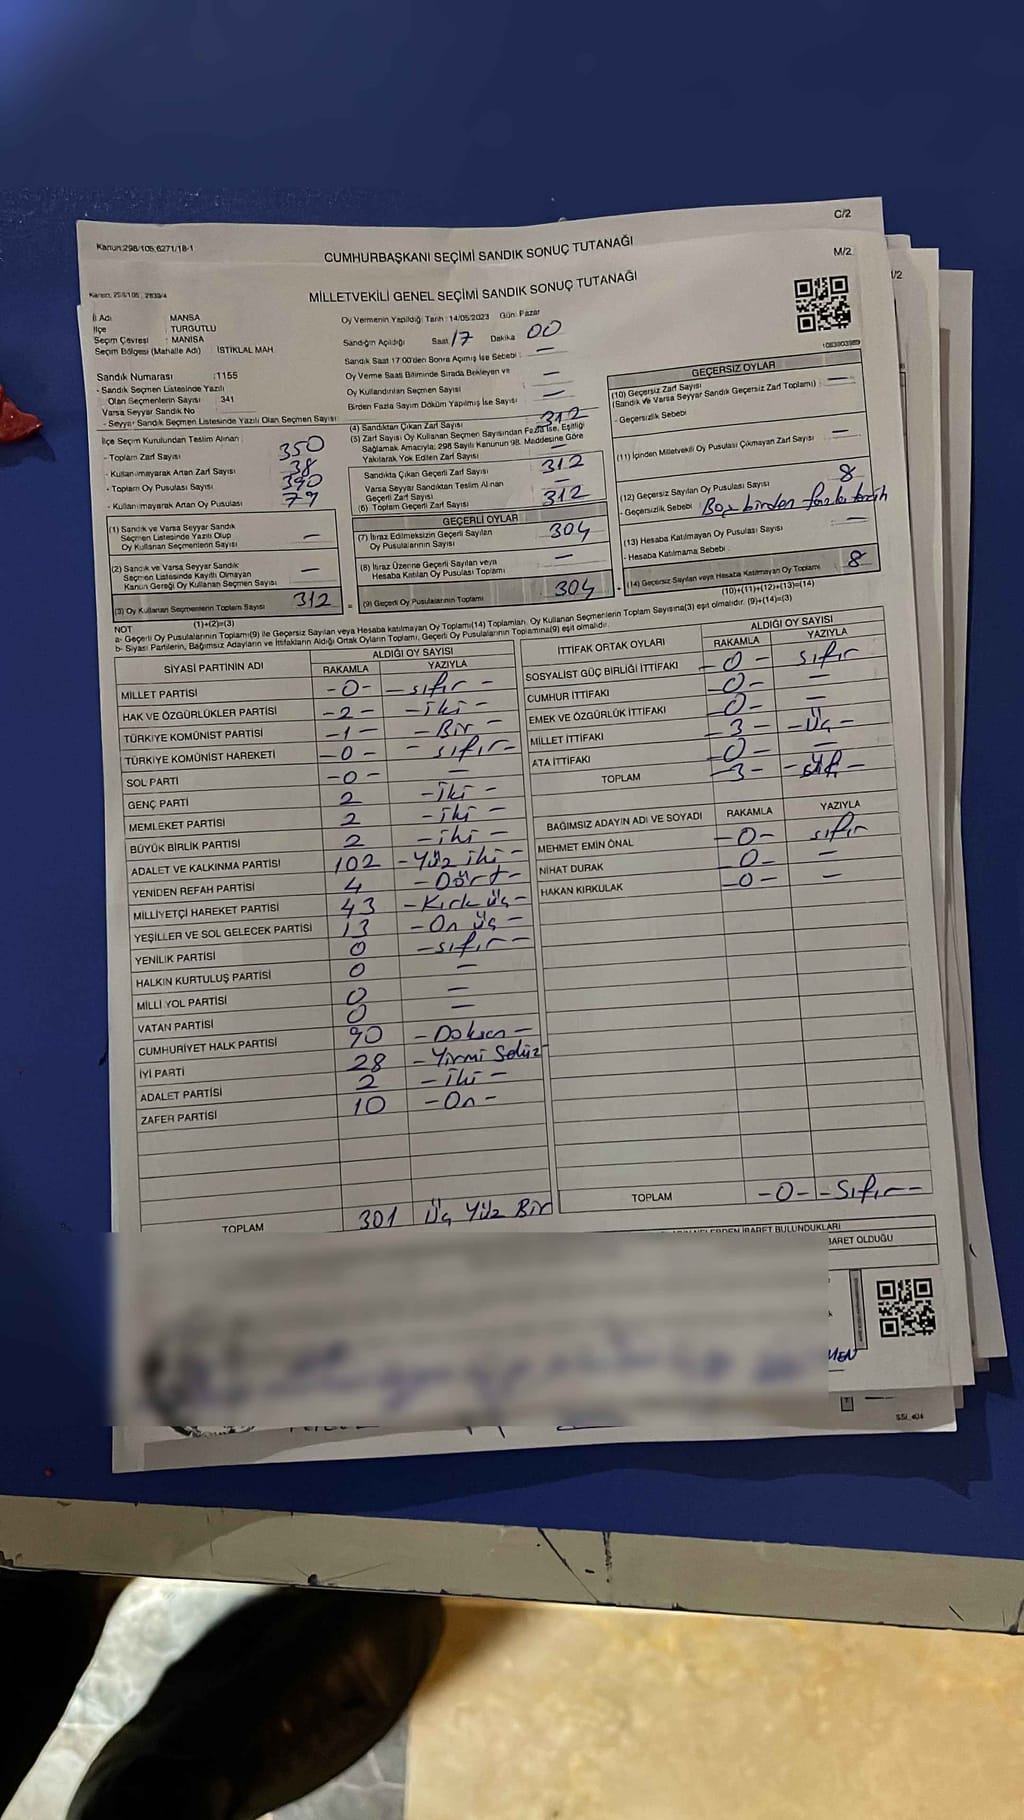 C/2
Kanun:298/105,6271/18-1
CUMHURBAŞKANI SEÇİMİ SANDIK SONUÇ TUTANAĞI
M/2
Kanun: 298/105, 2839/4
MİLLETVEKİLİ GENEL SEÇİMİ SANDIK SONUÇ TUTANAĞI
İl Adı MANİSA
İlçe TURGUTLU
Seçim Çevresi : MANİSA
Seçim Bölgesi (Mahalle Adı) : İSTİKLAL MAH
Sandık Numarası :1155
- Sandık Seçmen Listesinde Yazılı
Olan Seçmenlerin Sayısı 341
Varsa Seyyar Sandık No
- Seyyar Sandık Seçmen Listesinde Yazılı Olan Seçmen Sayısı
Oy Vermenin Yapıldığı Tarih :14/05/2023 Gün: Pazar
Sandığın Açıldığı Saat 17 Dakika 00
Sandık Saat 17:00'den Sonra Açılmış İse Sebebi : —
Oy Verme Saati Bitiminde Sırada Bekleyen ve
Oy Kullandırılan Seçmen Sayısı —
Birden Fazla Sayım Döküm Yapılmış İse Sayısı —
1083803989
İlçe Seçim Kurulundan Teslim Alınan
- Toplam Zarf Sayısı 350
- Kullanılmayarak Artan Zarf Sayısı 38
- Toplam Oy Pusulası Sayısı 390
- Kullanılmayarak Artan Oy Pusulası 79
(1) Sandık ve Varsa Seyyar Sandık
Seçmen Listesinde Yazılı Olup
Oy Kullanan Seçmenlerin Sayısı —
(2) Sandık ve Varsa Seyyar Sandık
Seçmen Listesinde Kayıtlı Olmayan
Kanun Gereği Oy Kullanan Seçmen Sayısı —
(3) Oy Kullanan Seçmenlerin Toplam Sayısı 312
(1)+(2)=(3)
(4) Sandıktan Çıkan Zarf Sayısı 312
(5) Zarf Sayısı Oy Kullanan Seçmen Sayısından Fazla İse, Eşitliği
Sağlamak Amacıyla; 298 Sayılı Kanunun 98. Maddesine Göre
Yakılarak Yok Edilen Zarf Sayısı —
Sandıkta Çıkan Geçerli Zarf Sayısı 312
Varsa Seyyar Sandıktan Teslim Alınan
Geçerli Zarf Sayısı —
(6) Toplam Geçerli Zarf Sayısı 312
GEÇERLİ OYLAR
(7) İtiraz Edilmeksizin Geçerli Sayılan
Oy Pusulalarının Sayısı 304
(8) İtiraz Üzerine Geçerli Sayılan veya
Hesaba Katılan Oy Pusulası Toplamı —
= (9) Geçerli Oy Pusulalarının Toplamı 304 +
GEÇERSİZ OYLAR
(10) Geçersiz Zarf Sayısı
(Sandık ve Varsa Seyyar Sandık Geçersiz Zarf Toplamı) —
- Geçersizlik Sebebi
(11) İçinden Milletvekili Oy Pusulası Çıkmayan Zarf Sayısı —
(12) Geçersiz Sayılan Oy Pusulası Sayısı 8
- Geçersizlik Sebebi Boş birden fazla tercih
(13) Hesaba Katılmayan Oy Pusulası Sayısı —
- Hesaba Katılmama Sebebi
(14) Geçersiz Sayılan veya Hesaba Katılmayan Oy Toplamı 8
(10)+(11)+(12)+(13)=(14)
NOT
a- Geçerli Oy Pusulalarının Toplamı(9) ile Geçersiz Sayılan veya Hesaba katılmayan Oy Toplamı(14) Toplamları, Oy Kullanan Seçmenlerin Toplam Sayısına(3) eşit olmalıdır. (9)+(14)=(3)
b- Siyasi Partilerin, Bağımsız Adayların ve İttifakların Aldığı Ortak Oyların Toplamı, Geçerli Oy Pusulalarının Toplamına(9) eşit olmalıdır.
SİYASİ PARTİNİN ADI ALDIĞI OY SAYISI
RAKAMLA YAZIYLA
MİLLET PARTİSİ -0- - sıfır -
HAK VE ÖZGÜRLÜKLER PARTİSİ -2- - iki -
TÜRKİYE KOMÜNİST PARTİSİ -1- - Bir -
TÜRKİYE KOMÜNİST HAREKETİ -0- - sıfır -
SOL PARTİ -0- —
GENÇ PARTİ 2 - iki -
MEMLEKET PARTİSİ 2 - iki -
BÜYÜK BİRLİK PARTİSİ 2 - iki -
ADALET VE KALKINMA PARTİSİ 102 - Yüz iki -
YENİDEN REFAH PARTİSİ 4 - Dört -
MİLLİYETÇİ HAREKET PARTİSİ 43 - Kırk üç -
YEŞİLLER VE SOL GELECEK PARTİSİ 13 - On üç -
YENİLİK PARTİSİ 0 - sıfır -
HALKIN KURTULUŞ PARTİSİ 0 —
MİLLİ YOL PARTİSİ 0 —
VATAN PARTİSİ 0 —
CUMHURİYET HALK PARTİSİ 90 - Doksan -
İYİ PARTİ 28 - Yirmi Sekiz
ADALET PARTİSİ 2 - iki -
ZAFER PARTİSİ 10 - On -
TOPLAM 301 Üç Yüz Bir
İTTİFAK ORTAK OYLARI ALDIĞI OY SAYISI
RAKAMLA YAZIYLA
SOSYALİST GÜÇ BİRLİĞİ İTTİFAKI -0- sıfır
CUMHUR İTTİFAKI -0- —
EMEK VE ÖZGÜRLÜK İTTİFAKI -0- —
MİLLET İTTİFAKI -3- - Üç -
ATA İTTİFAKI -0- —
TOPLAM -3-
BAĞIMSIZ ADAYIN ADI VE SOYADI RAKAMLA YAZIYLA
MEHMET EMİN ÖNAL -0- sıfır
NİHAT DURAK -0- —
HAKAN KIRKULAK -0- —
TOPLAM -0- - Sıfır -
NELERDEN İBARET BULUNDUKLARI
BARET OLDUĞU
MEN
/2